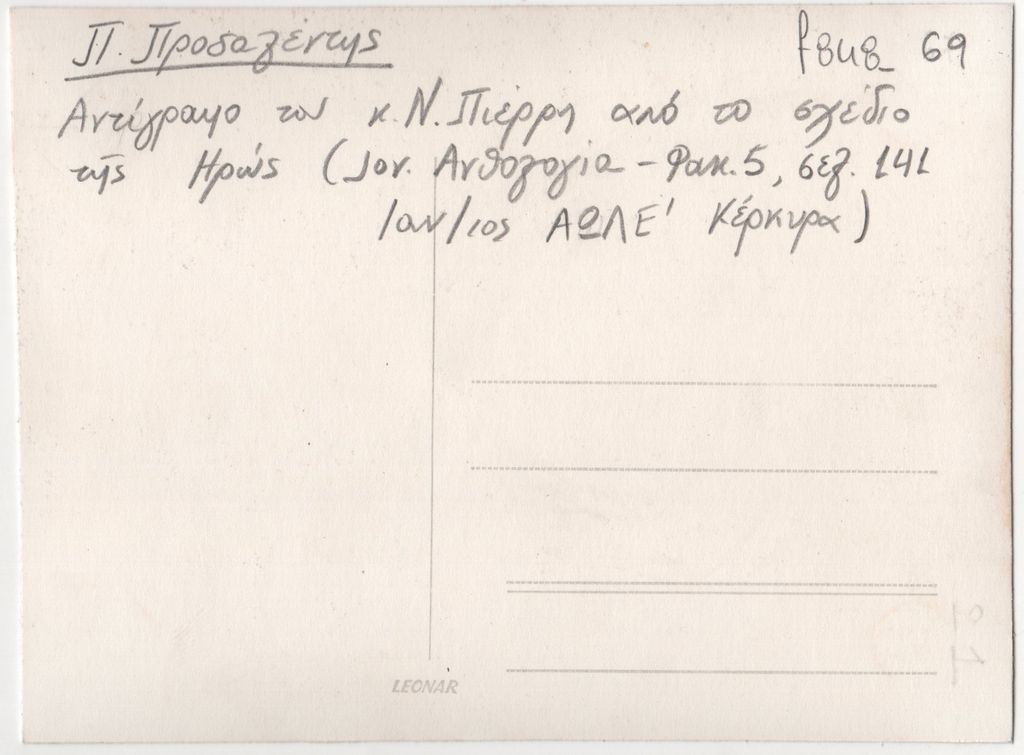 Π. Προσαλέντης
69
Αντίγραφο του κ. Ν. Πιέρρη από το σχέδιο
της Ηρώς (Ιον. Ανθολογία - Φακ. 5, σελ. 141
Ιαν/ιος ΑΩΛΕ' Κέρκυρα)
LEONAR